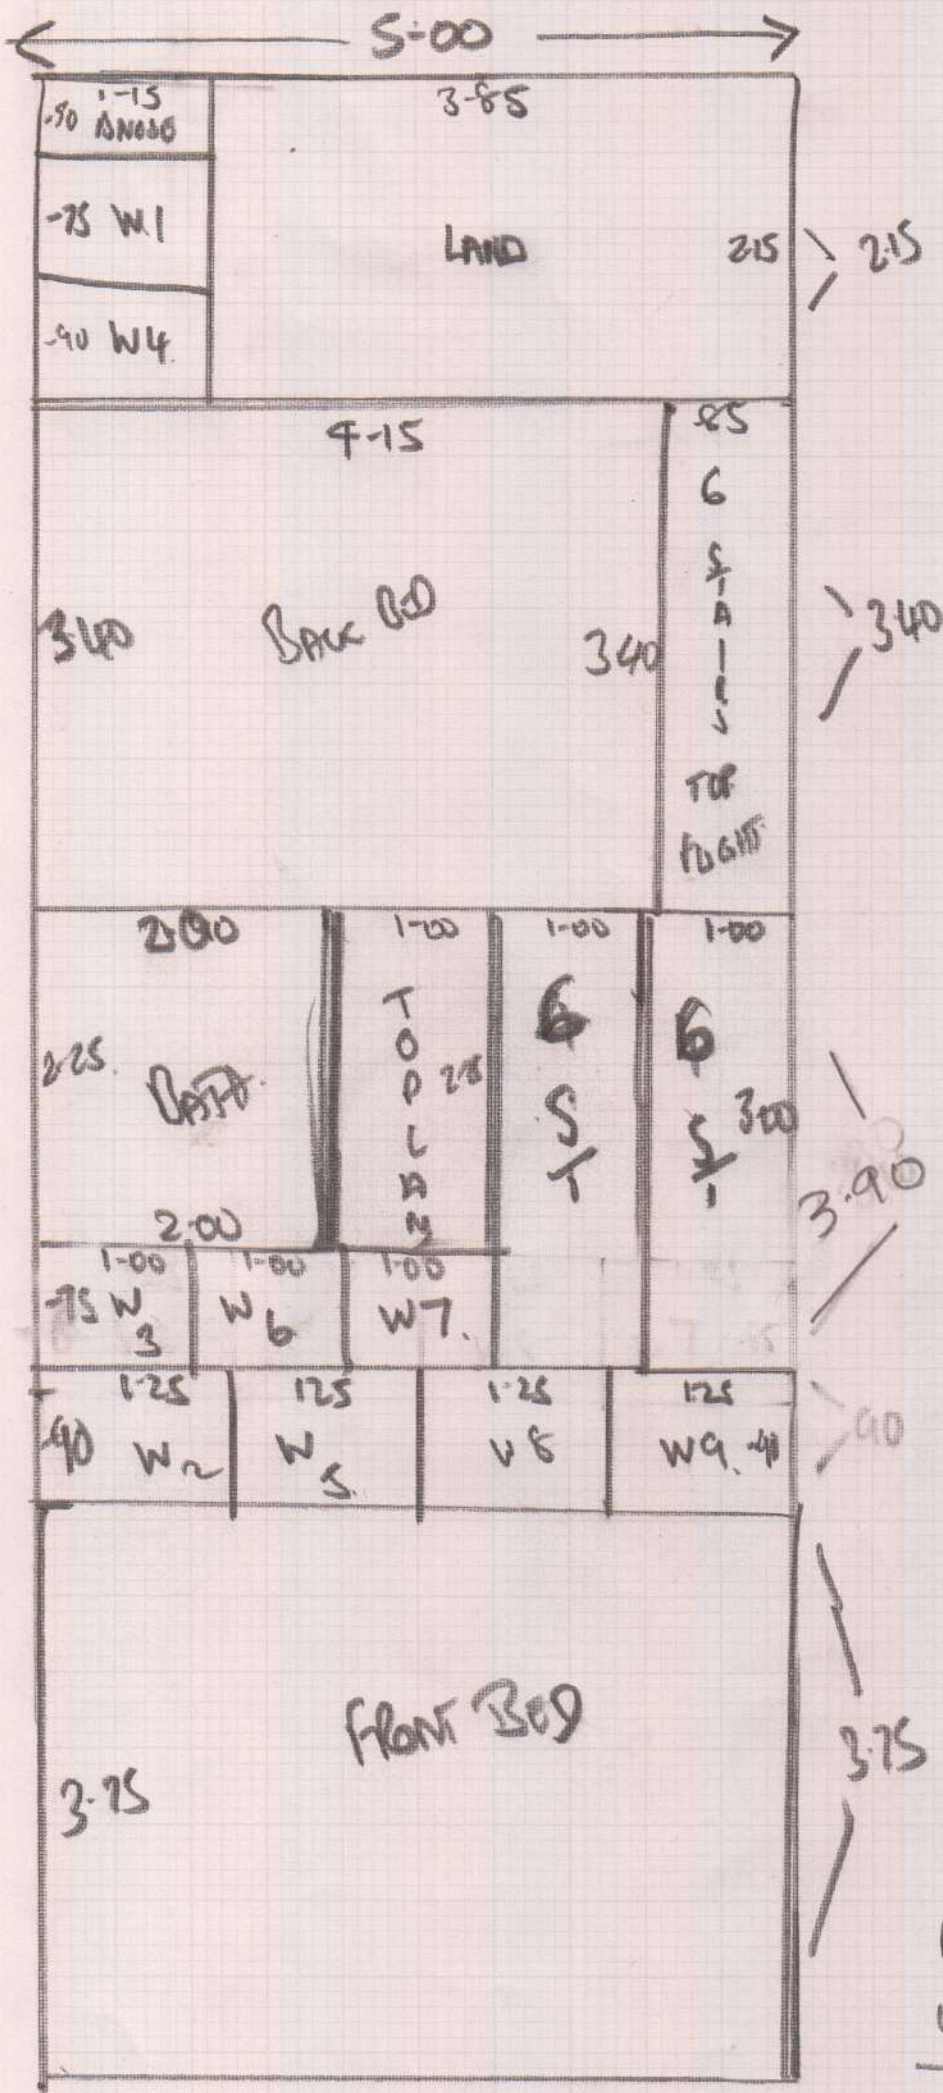 5-00
1-15
3-85
-50
-75 W.1
LAND
2.15
2.15
-90 W4
4-15
.85
6
STAIRS
TOP
FLIGHT
3.40
BACK BED
3.40
3.40
2.00
1-00
1-00
1-00
2-25.
BATH
TOP LAN
6 ST
6 ST
3.00
3.90
2.00
1-00
1-00
1-00
-75 W3
W6
W7.
1-25
1.25
1-25
1.25
-90
W2
W5
W8
W9.
.90
FRONT BED
3.75
3.75